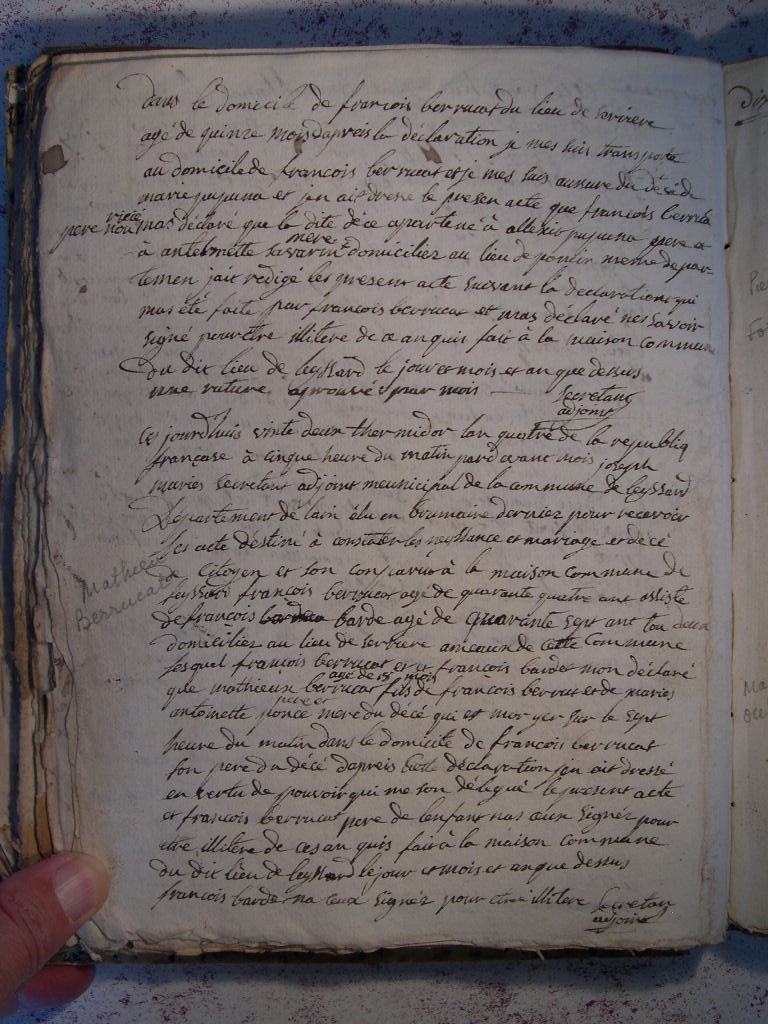 dans le domicile de francois berrucat du lieu de serriere
agé de quinze mois dapreis la declaration je mes suis transporté
au domicile de francois berrucat et je mes suis aussure du décé de
marie pupuna et jen ait dressé le presen acte que francois berruca
pere nouricié mas déclaré que la dite déce apartené à allexis pupuna pere et
à antelmette savarin mere domiciliez au lieu de poncin meme depar
temen jait redigé les present acte suivant la declarations qui
mas été faite par francois berrucat et mas déclaré nes savoir
signé pour etre illitere de ce anquis fait à la maison commune
du dit lieu de leyssard le jour et mois et an que dessus
une rature aprouvé par mois
Secretang
adjoint
Ce jourdhuis vinte deux thermidor lan quatre de la republiq
française à cinque heure du matin pard avant mois joseph
maries Secretant adjoint meunicipal de la commune de leyssard
Département de lain élu en brumaire dernier pour recevoir
les acte déstiné à constater les neyssance et mariage et décé
Mathieu
Berrucard
de citoyen et son comparu à la maison commune de
leyssard francois berrucat agé de quarante quatre ant assisté
de francois barde agé de quarante sept ant tou deux
domiciliez au lieu de serriere ameaux de cette commune
lesquel francois berrucat et et francois bardet mon déclaré
que mathieux berrucat agé de 18 mois fils de francois berrucat et de maries
antoinette ponce pere et mere du décé qui est mor yer sur le sept
heure du matin dans le domicile de francois berrucat
son pere du décé dapreis cete déclaration jen ait dressé
en vertu de pouvoir qui me son délégué le present acte
et francois berrucat pere de lenfant nas ceux signéz pour
etre illitere de ces anquis fait à la maison commune
du dit lieu de leyssard le jour et mois et an que dessus
francois bardet na ceux signéz pour etre illitere
Secretang
adjoint